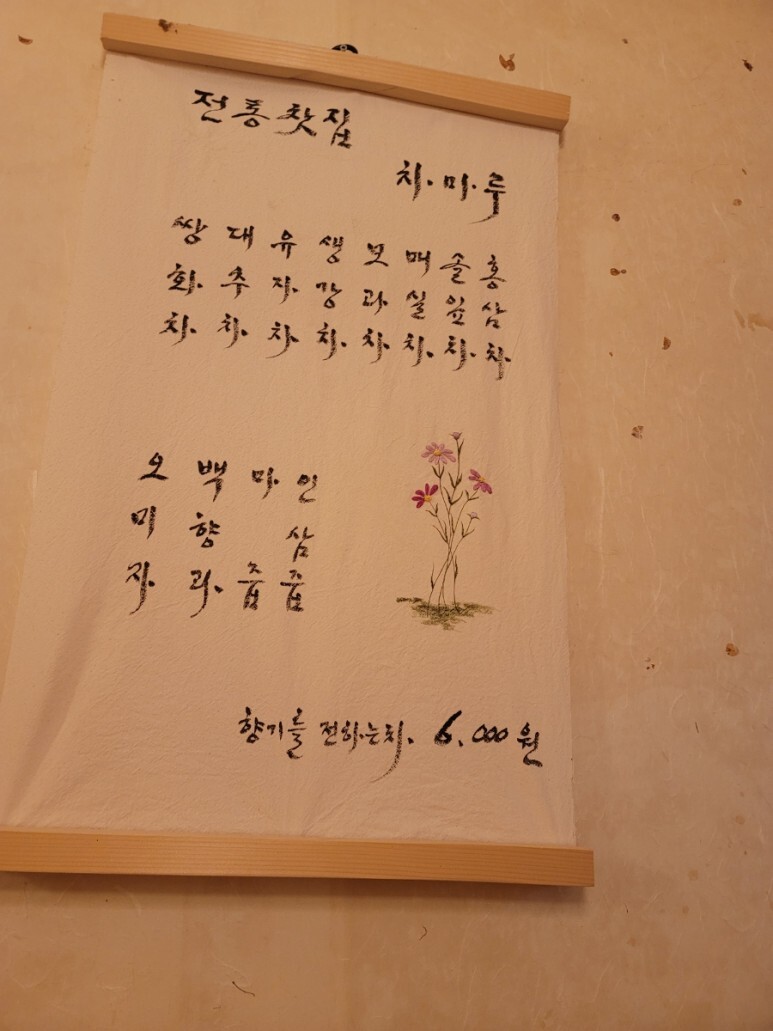 전통찻집
차마루
쌍화차
대추차
유자차
생강차
모과차
매실차
솔잎차
홍삼차
오미자
백향과
마즙
인삼즙
향기를 전하는차 6,000원